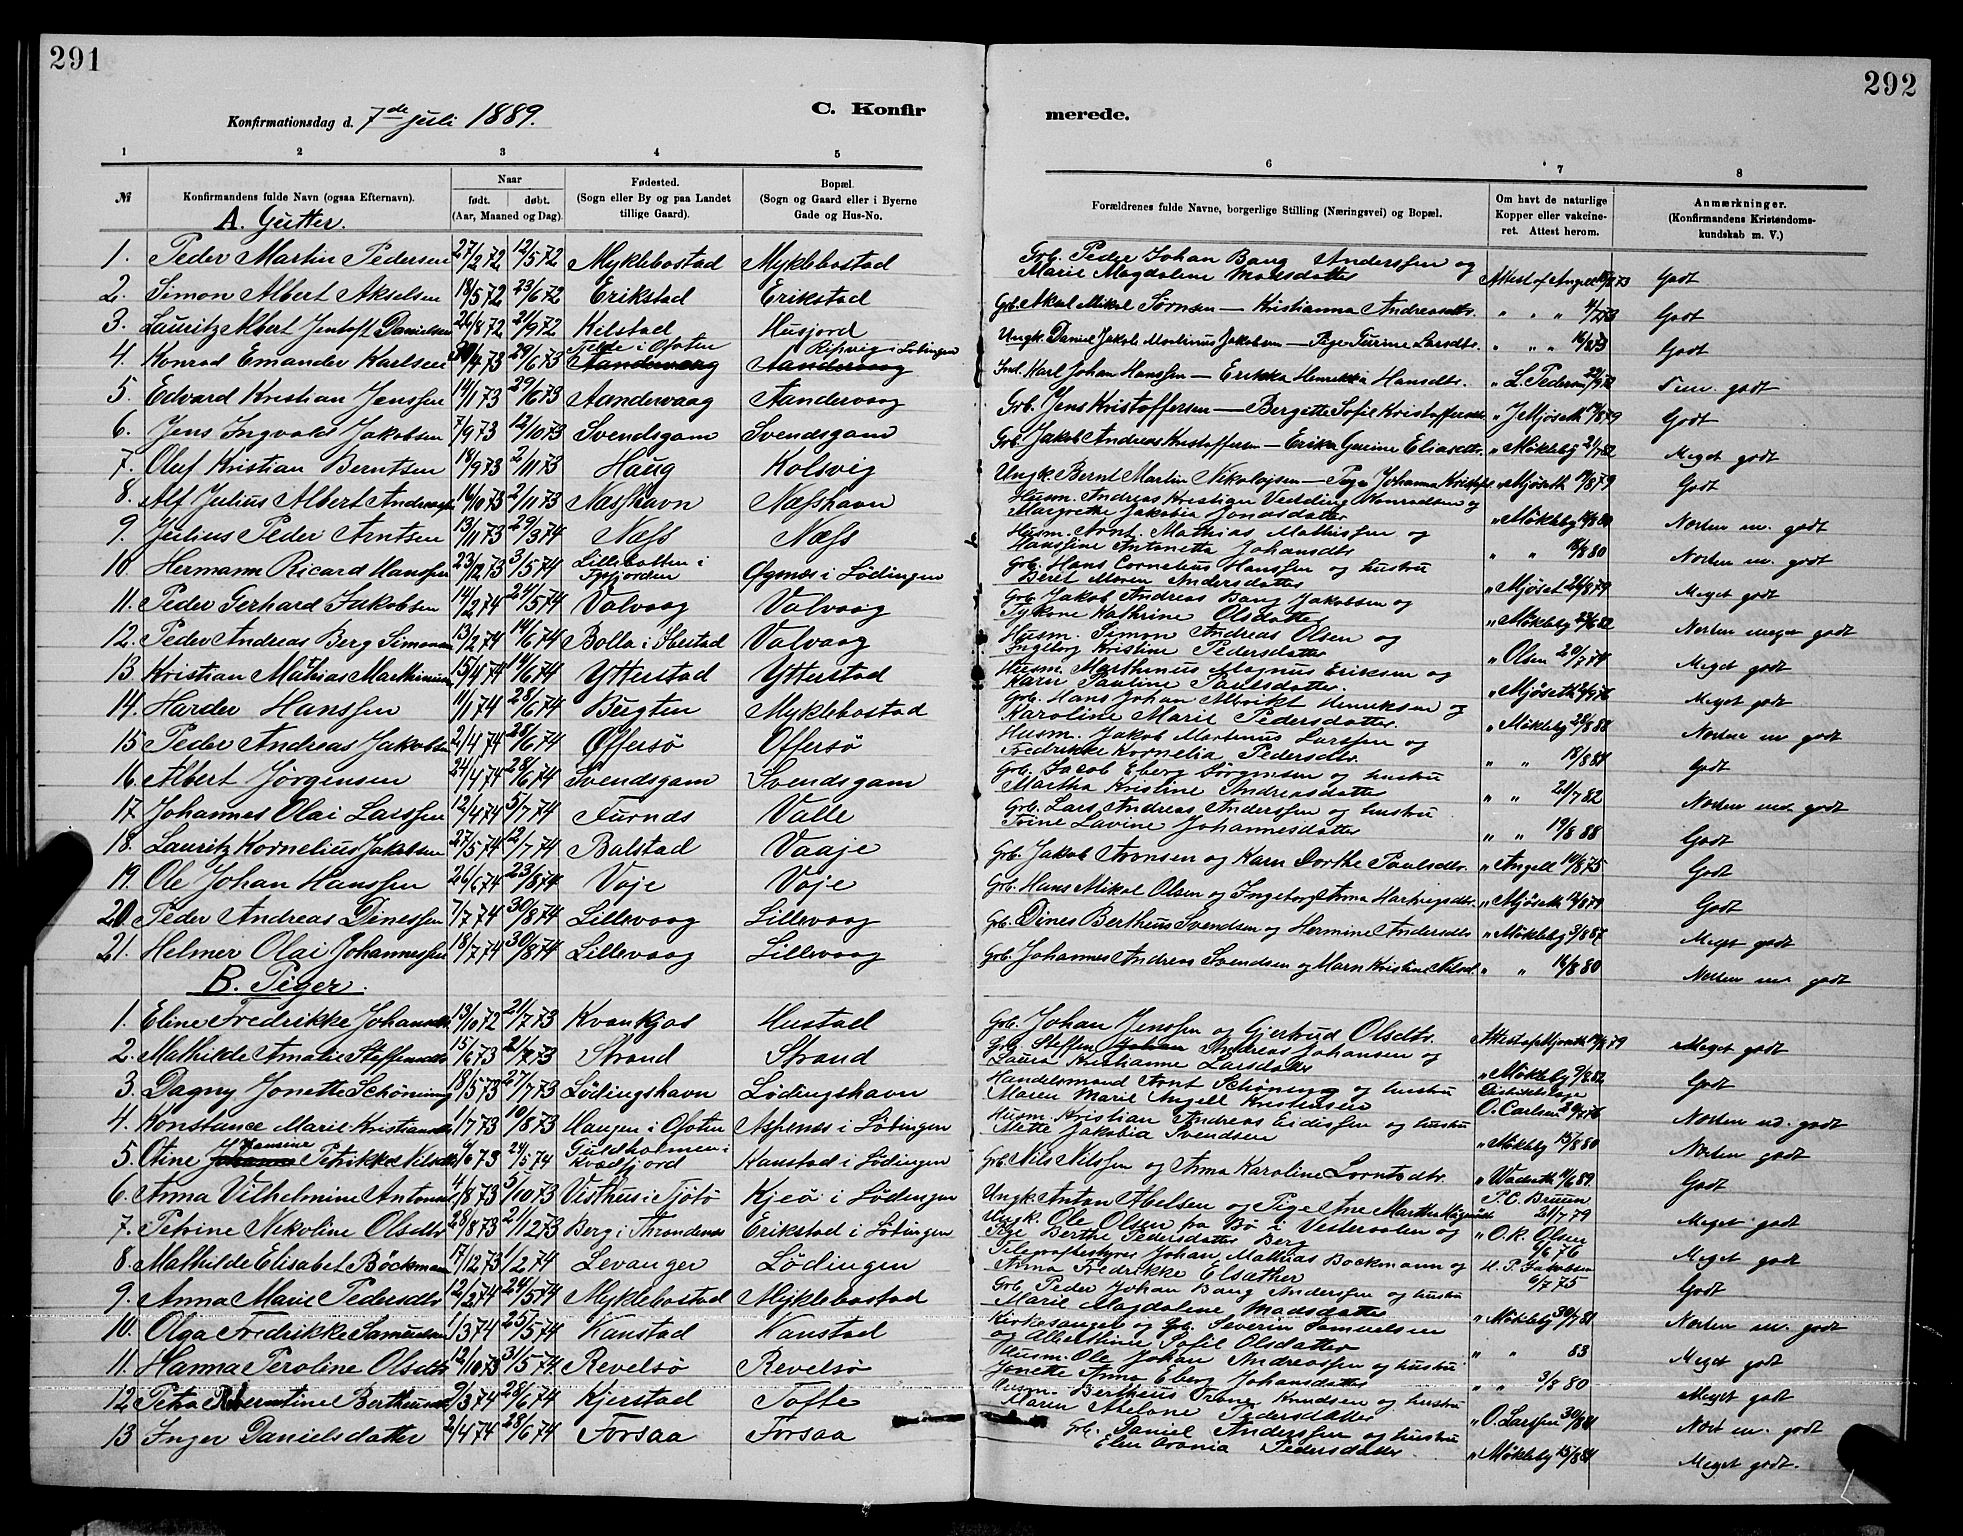 291
292
Konfirmationsdag d. 7de juli 1889.
C. Konfirmerede.
1 2 3 4 5 6 7 8
№ | Konfirmandens fulde Navn (ogsaa Efternavn). | Naar født. døbt. (Aar, Maaned og Dag). | Fødested. (Sogn eller By og paa Landet tillige Gaard). | Bopæl. (Sogn og Gaard eller i Byerne Gade og Hus-No. | Forældrenes fulde Navne, borgerlige Stilling (Næringsvei) og Bopæl. | Om havt de naturlige Kopper eller vakcineret. Attest herom. | Anmærkninger. (Konfirmandens Kristendomskundskab m. V.)
A. Gutter.
1. Peder Martin Pedersen 27/2 72 12/5 72 Myklebostad Myklebostad Grb. Peder Johan Bang Anderssen og Marie Magdalene Madsdatter Attest af Angell 73 Godt
2. Simon Albert Akselsen 18/5 72 23/6 72 Erikstad Erikstad Grb. Aksel Mikal Sørnsen — Kristianna Andreasdtr. " " " Godt
3. Lauritz Albert Jentoft Danielsen 26/8 72 21/9 72 Kilstad Husjord Ungk. Daniel Jakob Martinus Jakobsen — Pige Turine Larsdtr. " " " Godt
4. Konrad Emander Karlsen 4 73 29/6 73 i Ofoten Aandervaag Ripvig i Lødingen Aandervaag Ind. Karl Johan Hanssen — Erikka Henrikka Hansdtr. " L. Pedersen godt
5. Edvard Kristian Jenssen 14/1 73 29/6 73 Aandervaag Aandervaag Grb. Jens Kristoffersen — Bergitte Sofie Kristoffersdtr. " J Mjöseth 79 Godt
6. Jens Ingvald Jakobsen 7/9 73 12/10 73 Svendsgam Svendsgam Grb. Jakob Andreas Kristoffersen — Erika Gurine Eliasdtr. " Mökleby 21/7 82 Meget godt
7. Oluf Kristian Berntsen 18/9 73 2/11 73 Haug Kolsvig Ungk. Bernt Martin Nikolajsen — Pige Johanna " Mjöseth 79 Godt
8. Alf Julius Albert Andreassen 16/10 73 2/11 73 Næshavn Næshavn Husm. Andreas Kristian Vedding Konradsen og Margrethe Jakobia Jonasdatter " Mökleby 80 Norten m. godt
9. Julius Peder Arntsen 13/11 73 29/3 74 Næss Næss Husm. Arnt Mathias Mathissen og Hanssine Antonetta Johansdtr " " 80 Norten m. godt
10. Hermann Ricard Hanssen 23/12 73 3/5 74 Lillebotten i Tysfjorden Øgsnes i Lödingen Grb. Hans Cornelius Hanssen og hustru Beret Maren Andersdatter " Mjöset 79 Meget godt
11. Peder Gerhard Jakobsen 14/2 74 24/5 74 Valvaag Valvaag Grb. Jakob Andreas Bang Jakobsen og Kathrine Olsdatter " Mökleby 82 Norten meget godt
12. Peder Andreas Berg Simonsen 13/2 74 14/6 74 Bolla i Ibestad Valvaag Husm. Simon Andreas Olsen og Ingeborg Kristine Pedersdatter " Olsen 20/7 74 Meget godt
13. Kristian Mathias Marthinussen 15/4 74 14/6 74 Ytterstad Ytterstad Husm. Marthinus Magnus Eriksen og Karn Pauline Paulsdatter. " Mjöseth Meget godt
14. Harder Hanssen 11/1 74 28/6 74 Bugten Myklebostad Grb. Hans Johan Henriksen og Karoline Marie Pedersdatter. " Mökleby 88 Norten m godt
15. Peder Andreas Jakobsen 2/4 74 28/6 74 Offersö Offersö Husm. Jakob Martinus Larssen og Fredrikke Kornelia Pedersdtr. " " Godt
16. Albert Jörgensen 24/4 74 28/6 74 Svendsgam Svendsgam Grb. Jacob Eberg Jörgensen og hustru Martha Kristine Andreasdatter " " 21/7 82 Norten m. godt
17. Johannes Olai Larssen 12/4 74 5/7 74 Furnes Valle Grb. Lars Andreas Anderssen og hustru Trine Lavine Johannesdatter " " 19/8 88 Godt
18. Lauritz Kornelius Jakobsen 27/5 74 12/7 74 Balstad Vaaje Grb. Jakob Aronsen og Karn Dorthe Paulsdtr. " Angell 75 Godt
19. Ole Johan Hanssen 26/6 74 23/8 74 Vaje Vaje Grb. Hans Mikal Olsen og Ingeborg Anna Hartvigsdtr. " Mjöseth 79 Godt
20. Peder Andreas Dinessen 7/7 74 30/8 74 Lillevaag Lillevaag Grb. Dines Bertheus Svendsen og Hermine Andersdtr " Mökleby 87 Meget godt
21. Helmer Olai Johannessen 18/7 74 30/8 74 Lillevaag Lillevaag Grb. Johannes Andreas Svendsen og Maren Kristine Nilsd. " " 80 Norten m. godt
B. Piger.
1. Eline Fredrikke Johansdtr 13/10 72 21/7 73 Kvankjos Hustad Grb. Johan Jenssen og Gjertrud Olsdtr. Attest af Mjöseth 79 Meget godt
2. Mathilde Amalie Steffensdtr 15/6 73 21/7 73 Strand Strand Grb. Steffen Johan Andreas Johansen og Laura Kristianne Larsdatter " Mökleby 9/8 82 Godt
3. Dagny Jonette Schöning 18/5 73 27/7 73 Lödingshavn Lödingshavn Handelsmand Arnt Schöning og hustru Maren Marie Angell Kristensen Distriktslæge O. Carlsen Norten m. godt
4. Konstance Marie Kristiansdtr 1/7 73 10/8 73 Haugen i Ofoten Aspenes i Lödingen Husm. Kristian Andreas Eidissen og hustru Mette Jakobia Svendsen " Mökleby 80 Norten godt
5. Otine Johanna Hansine Petrikke Nilsdtr 6 73 24/5 74 Guldholmen i Kvædfjord Kanstad i Lödingen Grb. Nils Nilssen og Anna Karoline Lorntsdtr. " 89. Godt
6. Anna Vilhelmine Antonsdtr 4/8 73 5/10 73 Visthus i Tjötö Kjeö i Lödingen Ungk. Anton Abelsen og Pige Ane Martha P. C. Bruun 79 Meget godt
7. Petrine Nikoline Olsdtr 28/8 73 21/12 73 Berg i Throndenes Erikstad i Lödingen Ungk. Ole Olsen fra Bö i Vesteraalen og Pige Berthe Pedersdatter Berg " O. K. Olsen 76 Meget godt
8. Mathilde Elisabet Böckmann 17/12 73 1/2 74 Levanger Lödingen Telegrafbestyrer Johan Mathias Bockmann og Anna Fredrikke Elsæther H. P. Jakobsen 6/7 75 Godt
9. Anna Marie Pedersdtr 12/2 74 24/5 74 Myklebostad Myklebostad Grb. Peder Johan Bang Anderssen og hustru Marie Magdalene Madsdatter " Mökleby 30/7 81 Norten m. godt
10. Olga Fredrikke Samuelsen 1/3 74 25/5 74 Kanstad Kanstad Kirkesanger og Grb. Severin Samuelsen og Albertine Sofie Olsdatter " " 83 Meget godt
11. Hanna Peroline Olsdtr. 12/10 73 31/5 74 Revelsö Revelsö Husm. Ole Johan Andreassen og hustru Jonette Anna Eberg Johansdatter " " 3/8 80 Meget godt
12. Petra Berntine Bertheusdtr 9/3 74 28/6 74 Kjerstad Tofte Husm. Bertheus Knudsen og hustru Maren Melone Pedersdatter " O. Larssen Nort m. godt
13. Inger Danielsdatter 2/4 74 28/6 74 Forsaa Forsaa Grb. Daniel Anderssen og hustru Elen Pedersdatter " Mökleby 15/8 84 Meget godt.